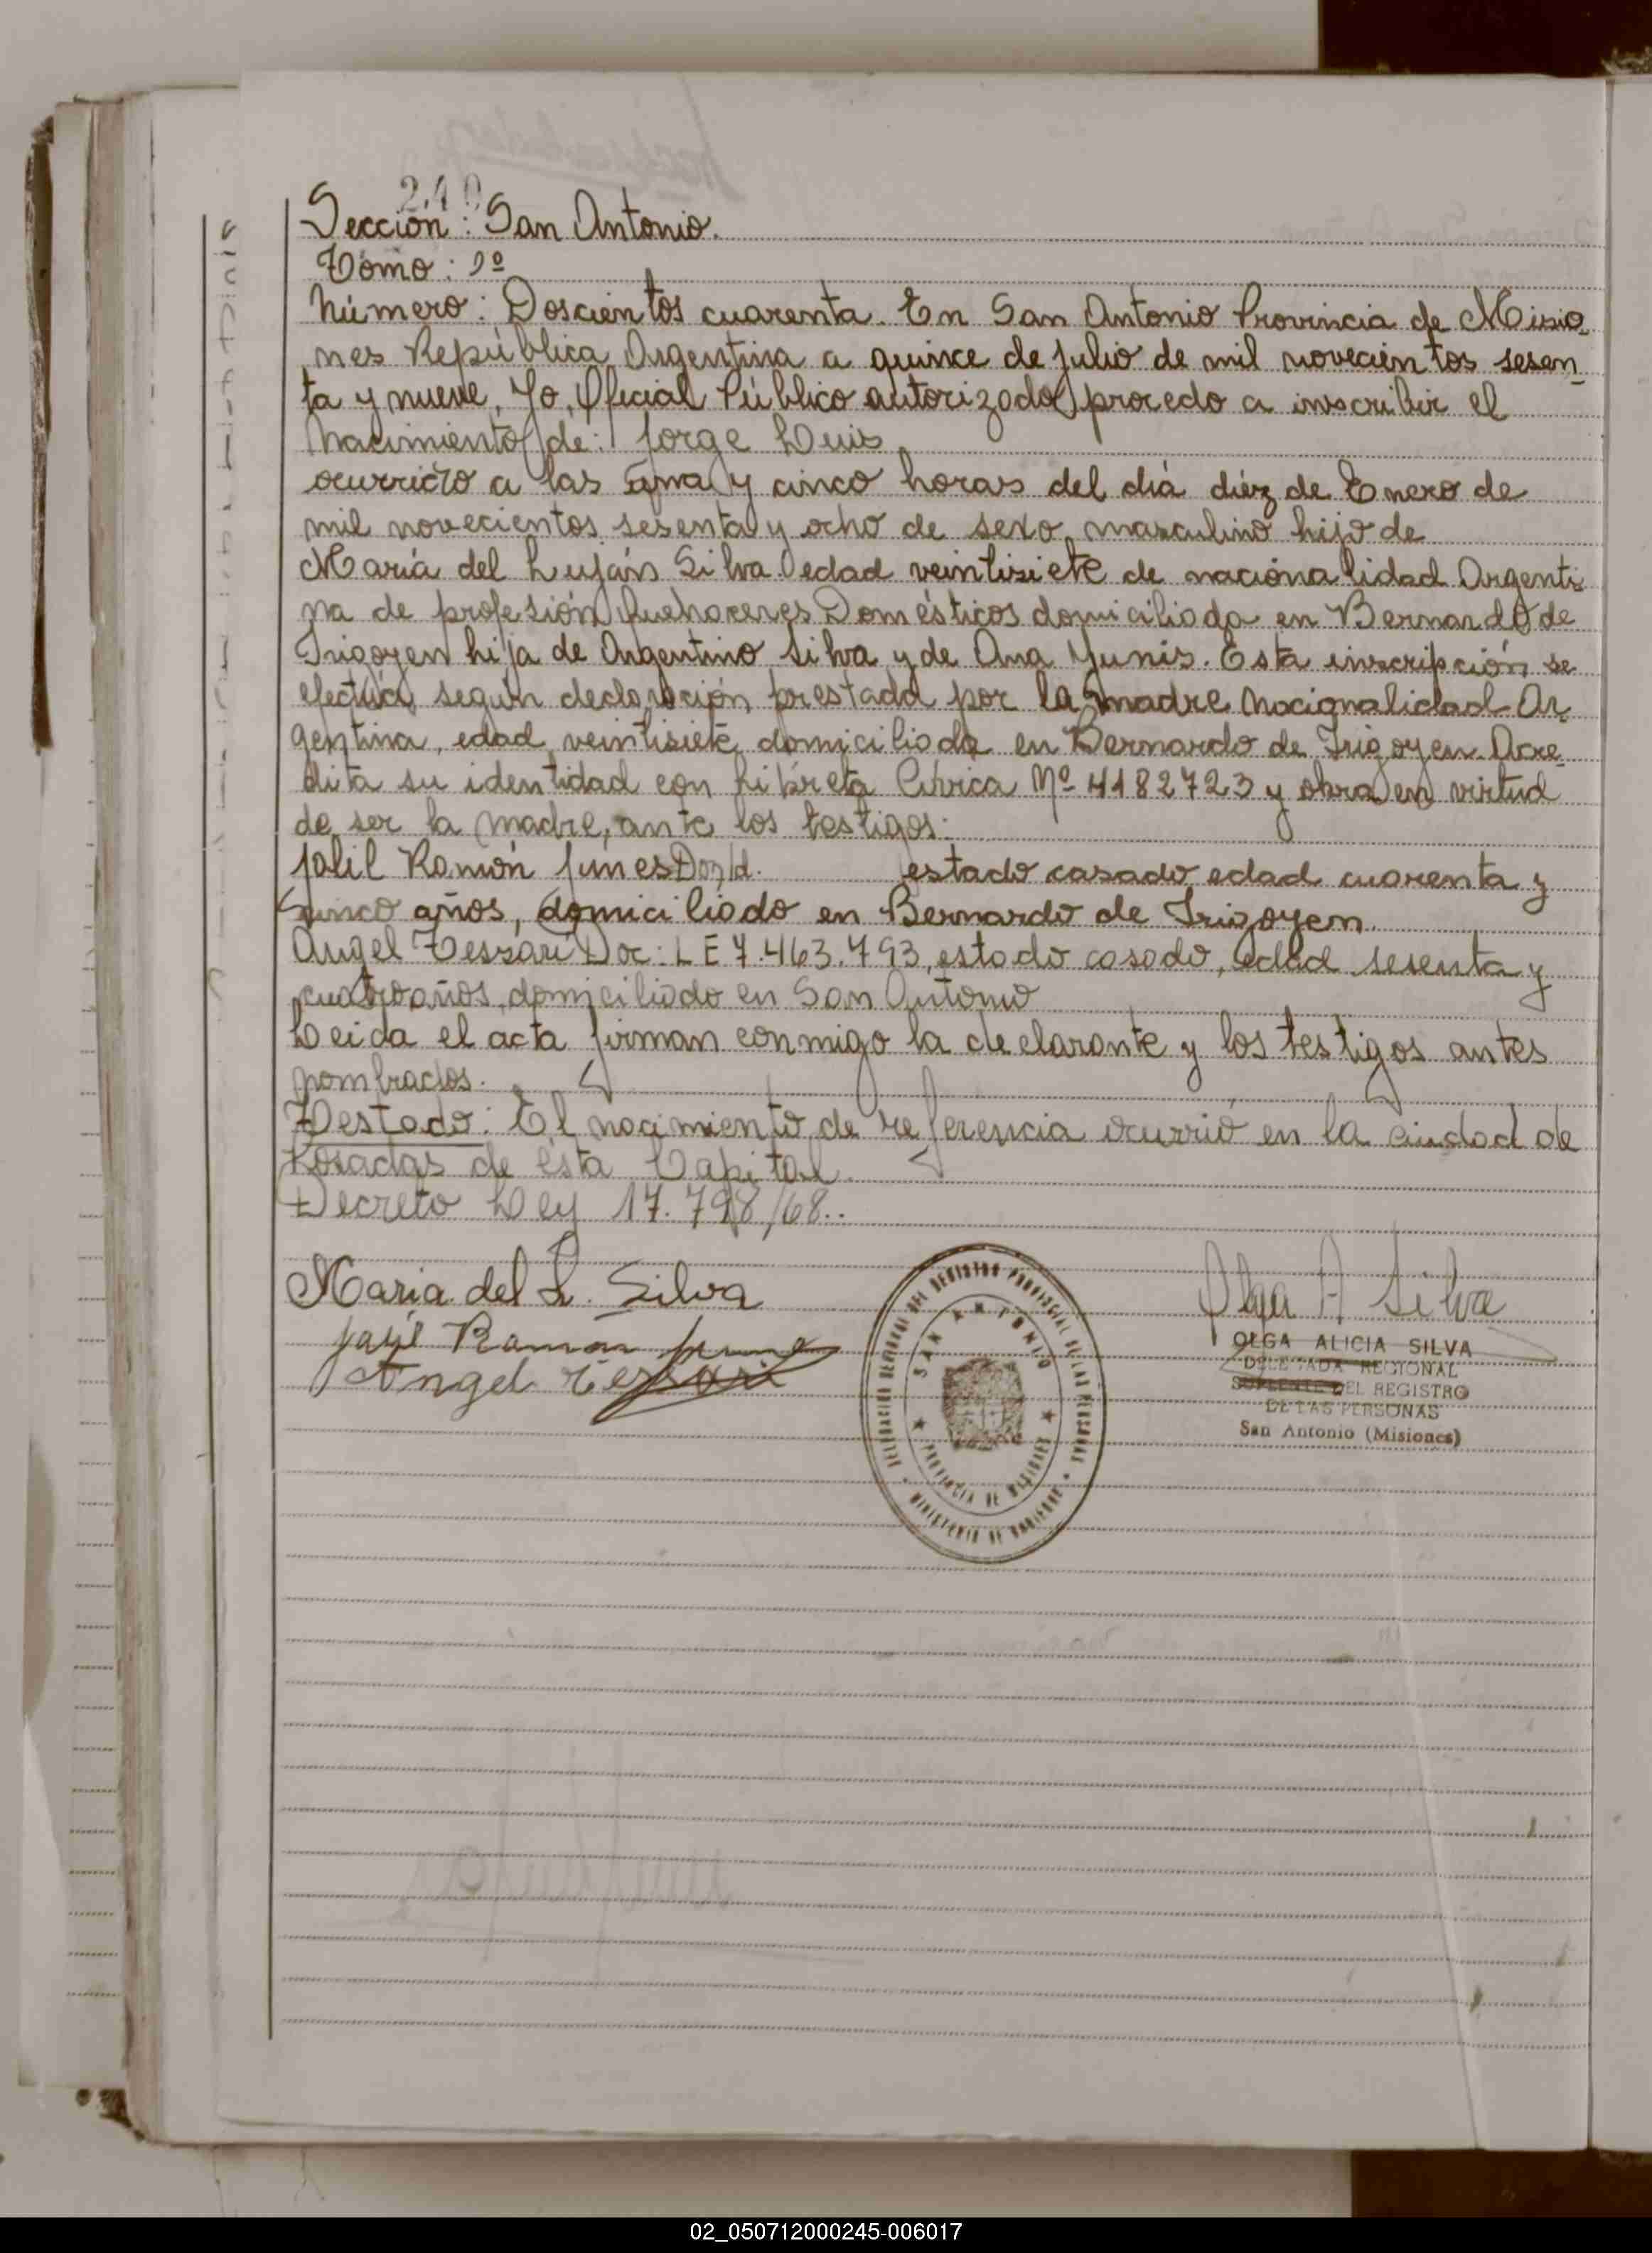 240
Sección: San Antonio.
Tomo: 1º
Número: Doscientos cuarenta. En San Antonio Provincia de Misio_
nes República Argentina a quince de julio de mil novecientos sesen_
ta y nueve, Yo, Oficial Público autorizado procedo a inscribir el
Nacimiento de: Jorge Luis
ocurrido a las una y cinco horas del día diéz de Enero de
mil novecientos sesenta y ocho de sexo masculino hijo de
María del Luján Silva edad veintisiete de nacionalidad Argenti_
na de profesión Quehaceres Domésticos domiciliada en Bernardo de
Irigoyen hija de Argentino Silva y de Ana Yunis. Esta inscripción se
efectúa según declaración prestada por la madre Nacionalidad Ar_
gentina, edad veintisiete domiciliada en Bernardo de Irigoyen. Acre_
dita su identidad con Libreta Cívica Nº 4182723 y obra en virtud
de ser la madre, ante los testigos:
Jalil Ramón Junes estado casado edad cuarenta y
cinco años, domiciliado en Bernardo de Irigoyen.
Angel Tessari Doc: L E 7.463.793, estado casado, edad sesenta y
cuatro años, domiciliado en San Antonio
Leida el acta firman conmigo la declarante y los testigos antes
nombrados.
Testado: El nacimiento de referencia ocurrió en la ciudad de
Posadas de ésta Capital.
Decreto Ley 17.798/68..
Maria del L. Silva
Olga A Silva
Ramon
Angel Tessari
OLGA ALICIA SILVA
DELEGADA REGIONAL
SUPLENTE DEL REGISTRO
DE LAS PERSONAS
San Antonio (Misiones)
DELEGACION REGIONAL DEL REGISTRO PROVINCIAL DE LAS PERSONAS
SAN ANTONIO
PROVINCIA DE MISIONES
MINISTERIO DE GOBIERNO
02_050712000245-006017